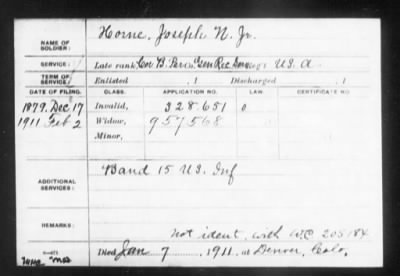 NAME OF SOLDIER: Horne, Joseph N. Jr.
SERVICE: Late rank Cor B. Perm. Gen Rec. Serv. Reg't U.S. A.
TERM OF SERVICE: Enlisted , 1 Discharged , 1
DATE OF FILING. CLASS. APPLICATION NO. LAW. CERTIFICATE NO.
1879. Dec 17 Invalid, 328.651 0
1911 Feb 2 Widow, 957568
Minor,
ADDITIONAL SERVICES: Band 15 U.S. Inf
REMARKS: not ident. with W.C. 205184
Died Jan 7, 1911, at Denver, Colo.